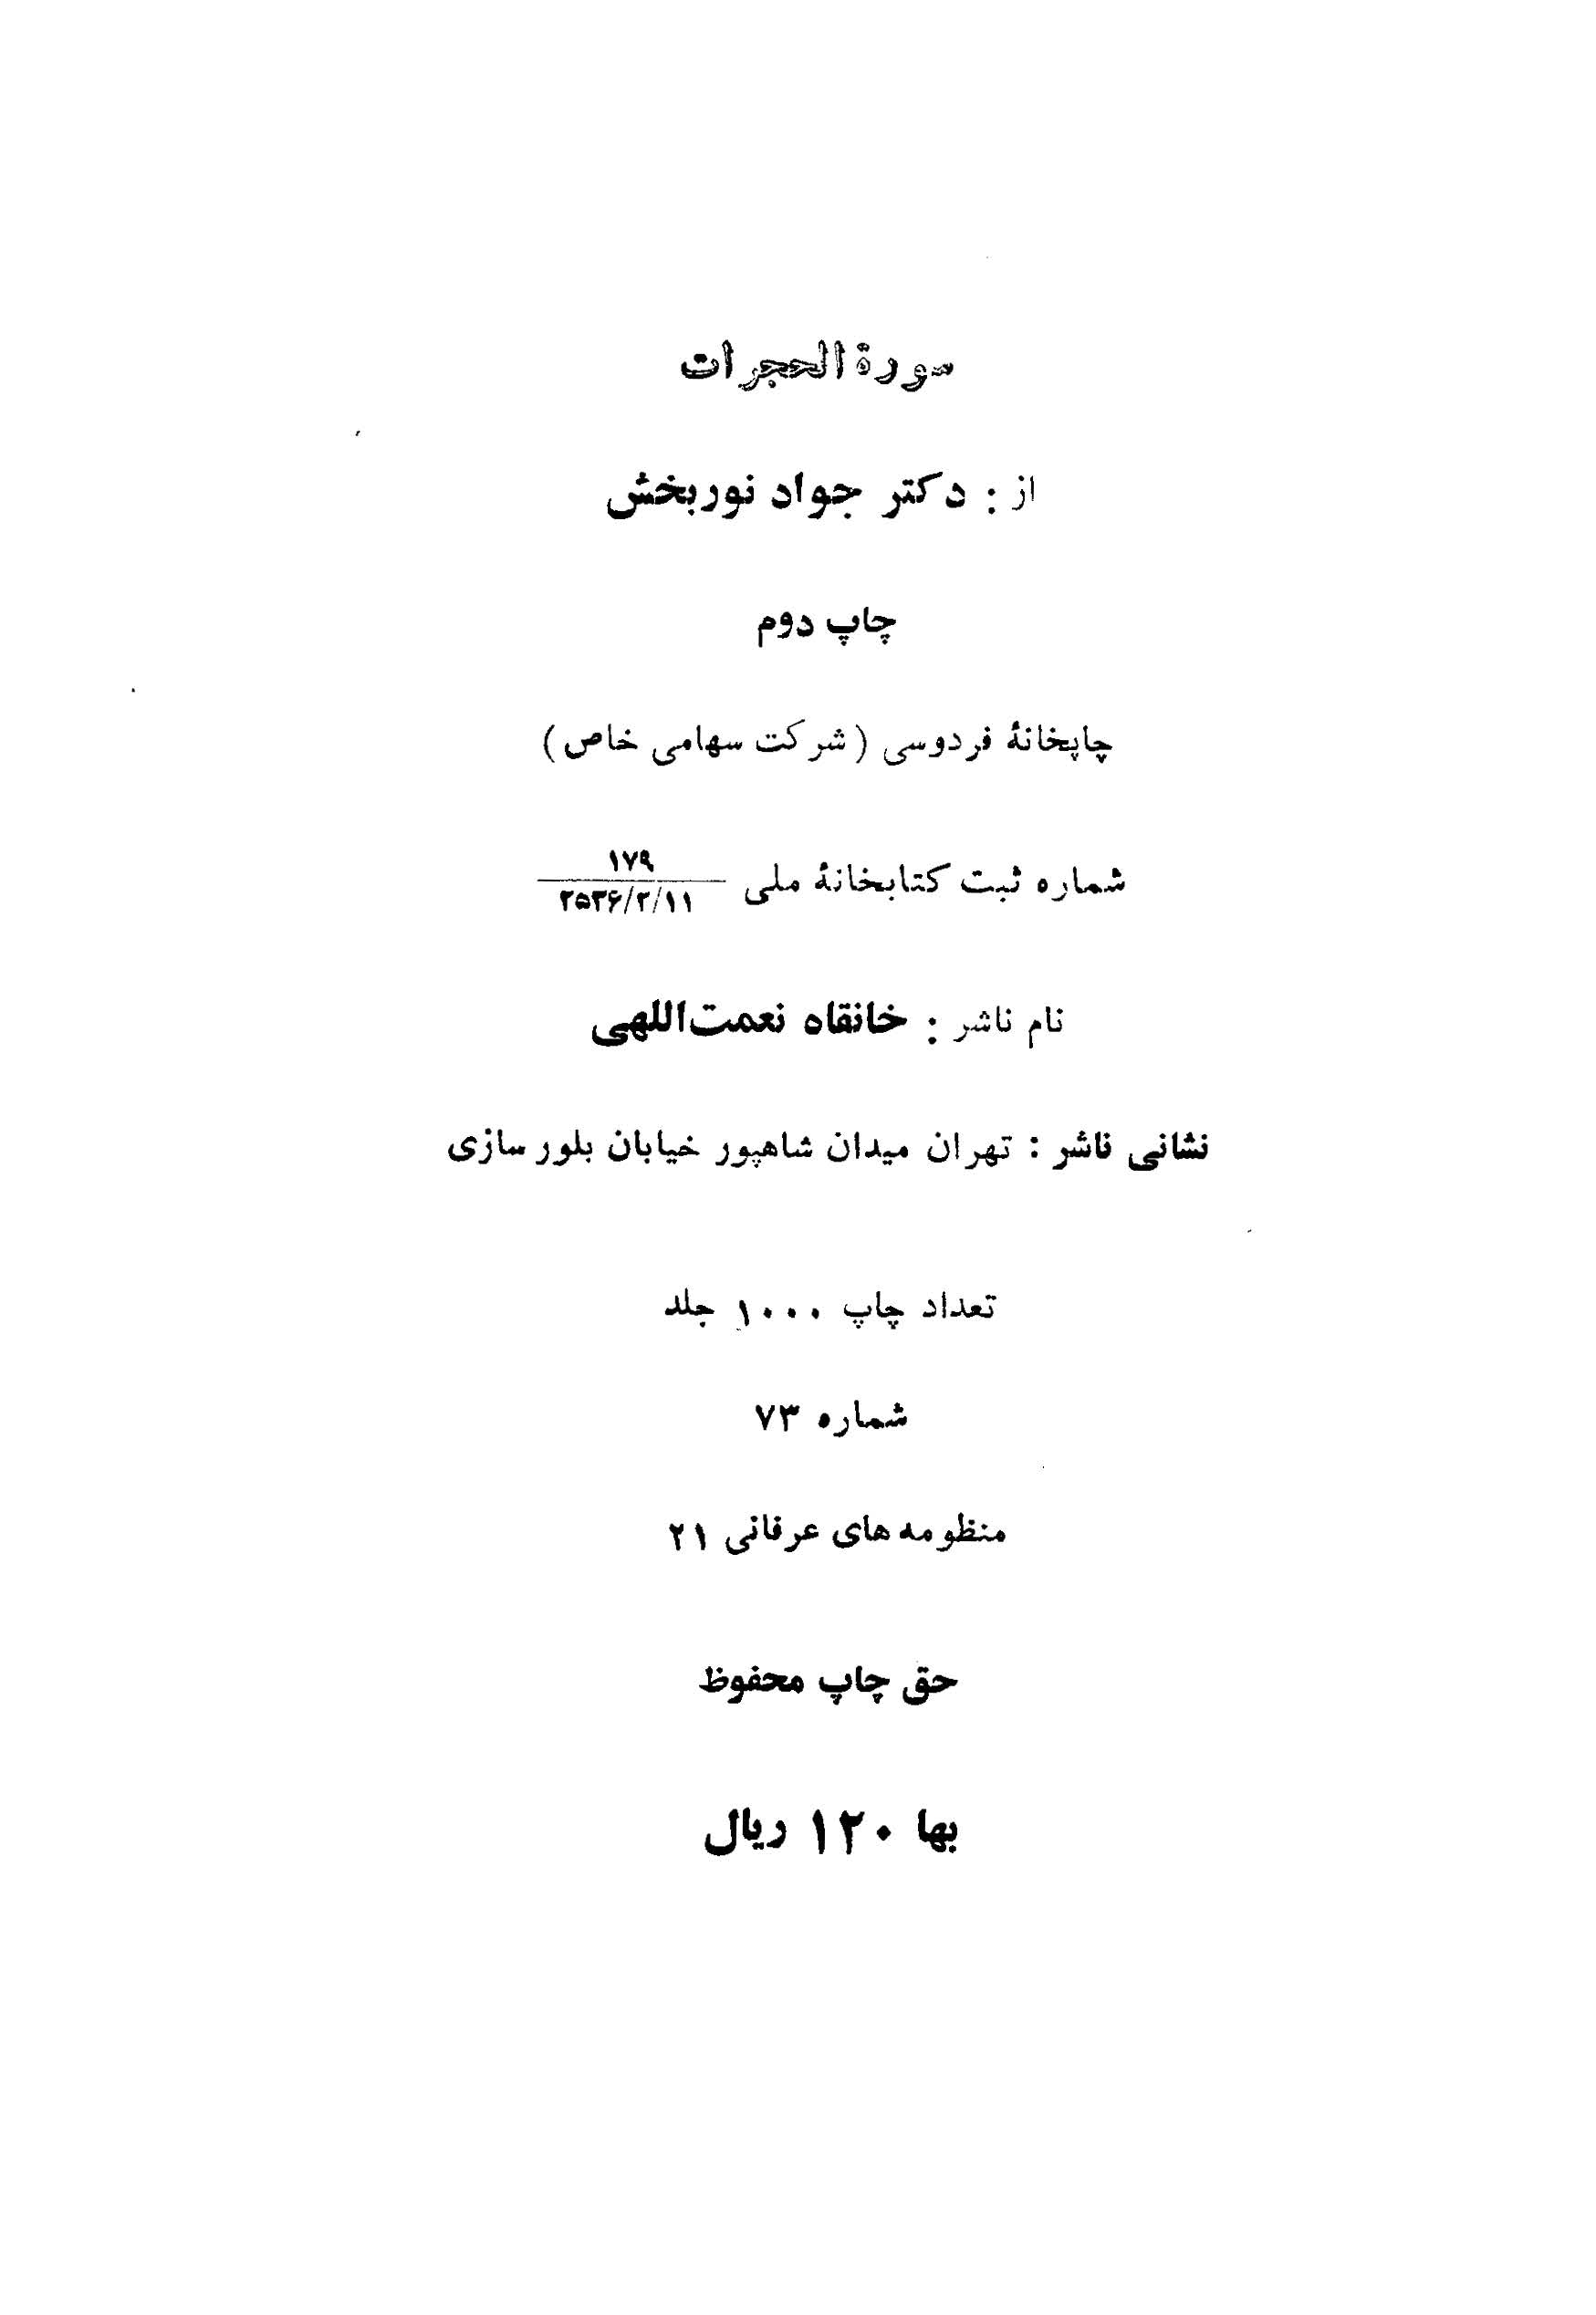 سورة الحجرات
از : دکتر جواد نوربخش
چاپ دوم
چاپخانهٔ فردوسی ( شرکت سهامی خاص )
شماره ثبت کتابخانهٔ ملی ۱۷۹
۲۵۳۶/۲/۱۱
نام ناشر : خانقاه نعمت‌اللهی
نشانی ناشر : تهران میدان شاهپور خیابان بلور سازی
تعداد چاپ ۱۰۰۰ جلد
شماره ۷۳
منظومه های عرفانی ۲۱
حق چاپ محفوظ
بها ۱۲۰ ریال